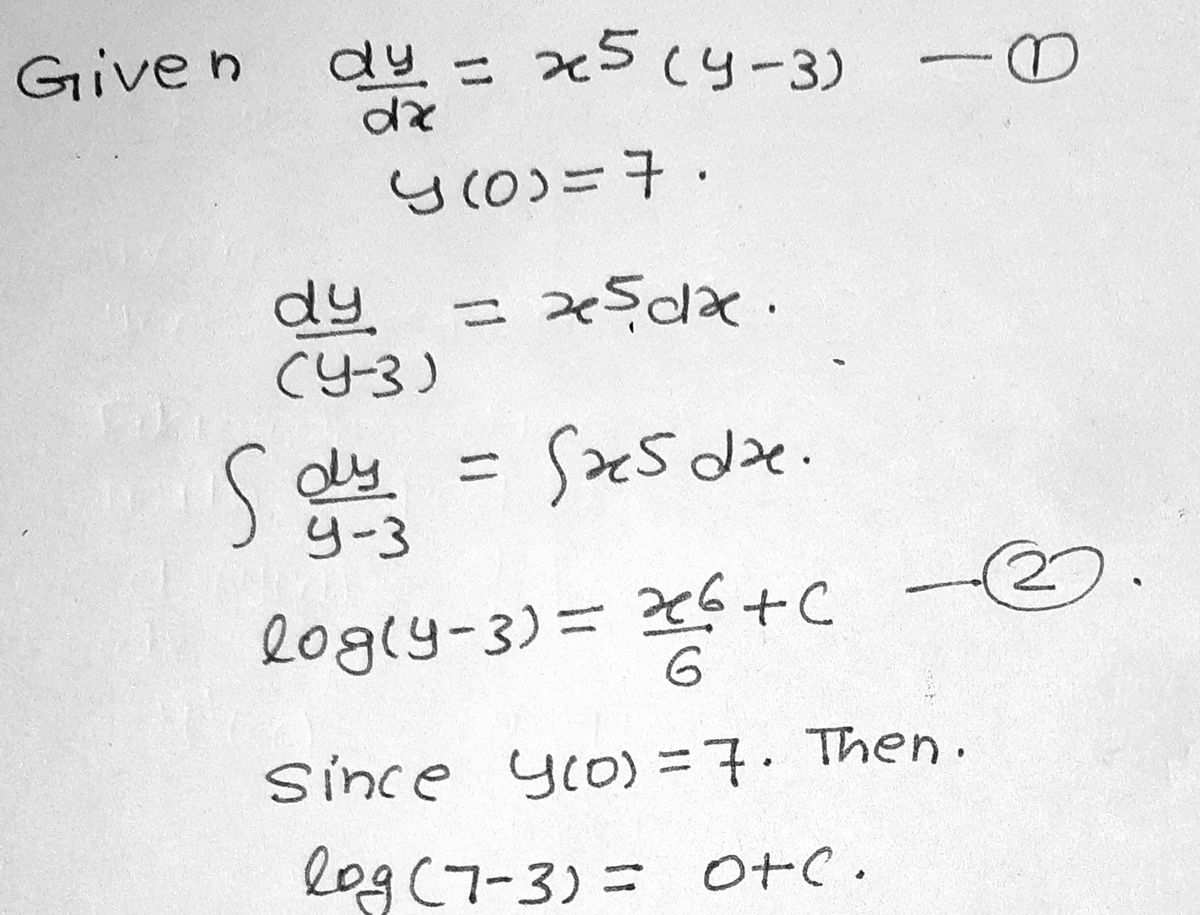 Given dy/dx = x^5 (y-3) —①
y(0)=7.
dy/(y-3) = x^5.dx.
∫ dy/y-3 = ∫x^5 dx.
log(y-3) = x^6/6 + C —②.
since y(0)=7. Then.
log(7-3) = 0+C.